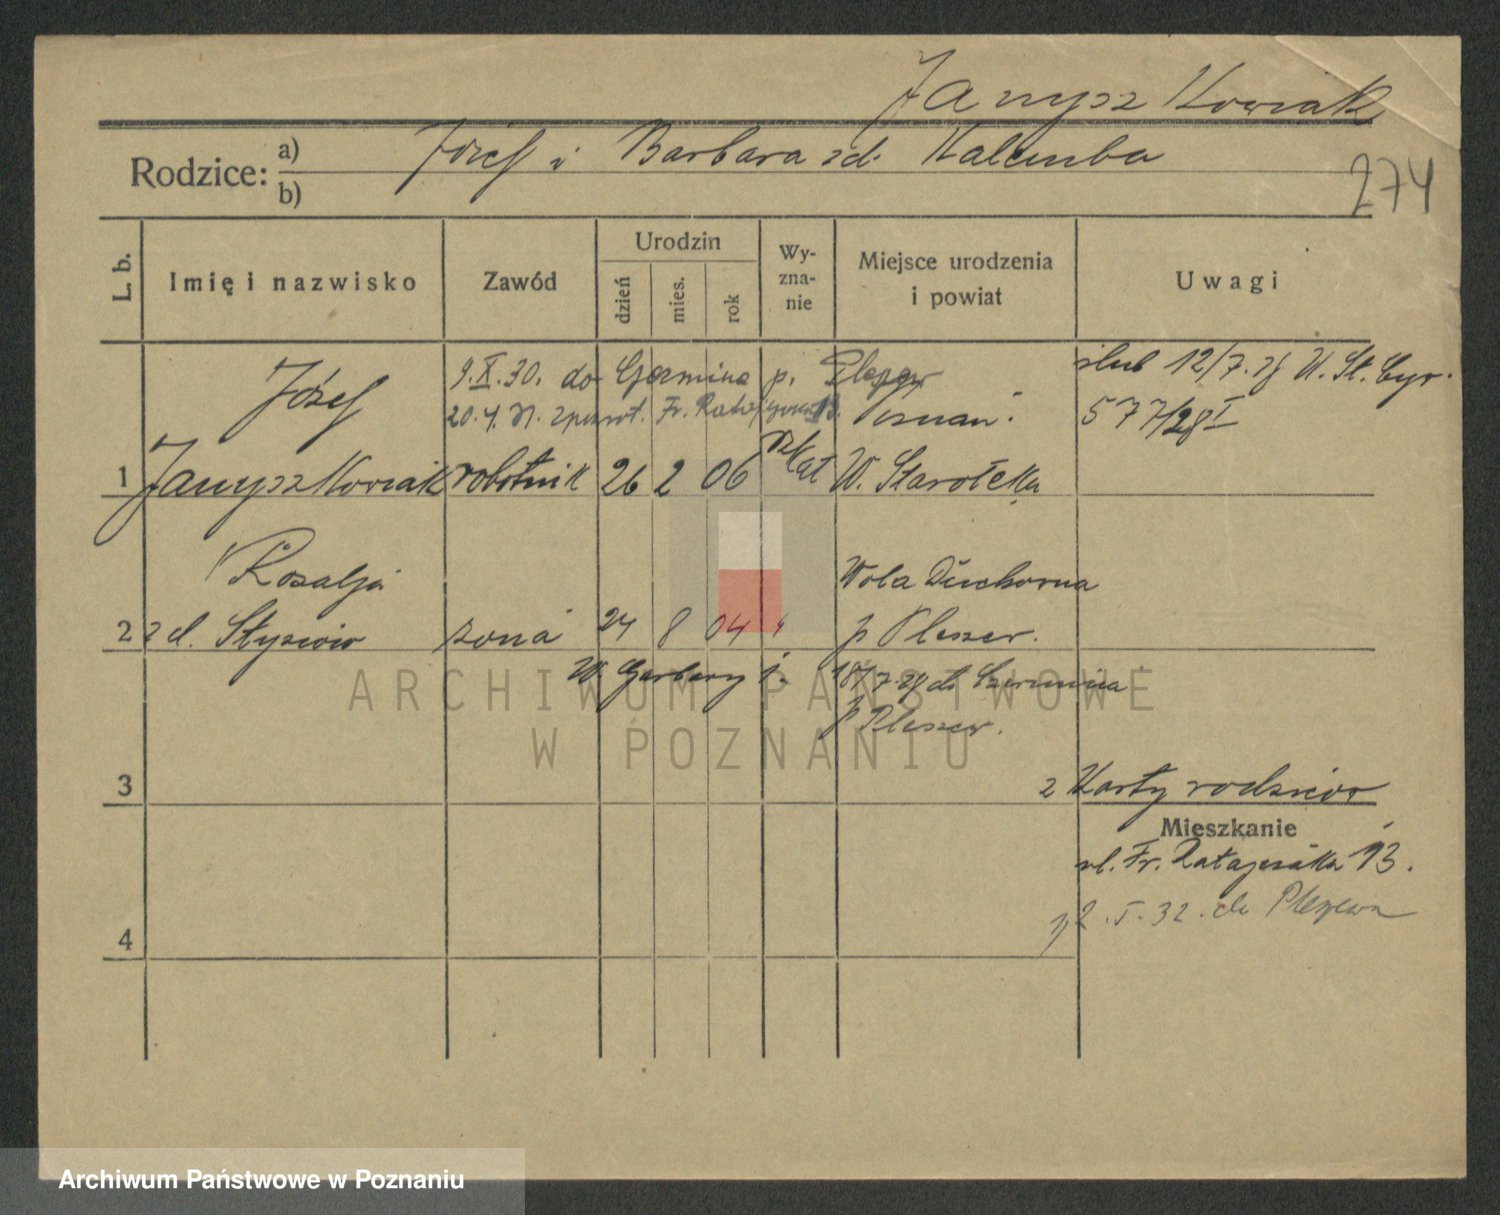 Janyszkowiak
Rodzice: a) Józef i Barbara zd. Kalemba
b)
274
L. b.
Imię i nazwisko
Zawód
Urodzin
dzień
mies.
rok
Wy-
zna-
nie
Miejsce urodzenia
i powiat
Uwagi
9.X.30. do p.
ślub 12/7.28 U. St. Cyw.
Józef
20.4.31. Fr. Ratajczaka 13. Poznań.
577/28 I
1 Janyszkowiak robotnik 26 2 06 rz kat W. Starołęka
Rozalja
Wola Duchowna
2 zd. żona 24 8 04 " p Pleszew.
W Garbary 1. 18/7.28 do Czermina
p Pleszew.
3
z Karty rodziców
Mieszkanie
ul. Fr. Ratajczaka 13.
2.I.32. do Pleszewa
4
ARCHIWUM PAŃSTWOWE
W POZNANIU
Archiwum Państwowe w Poznaniu